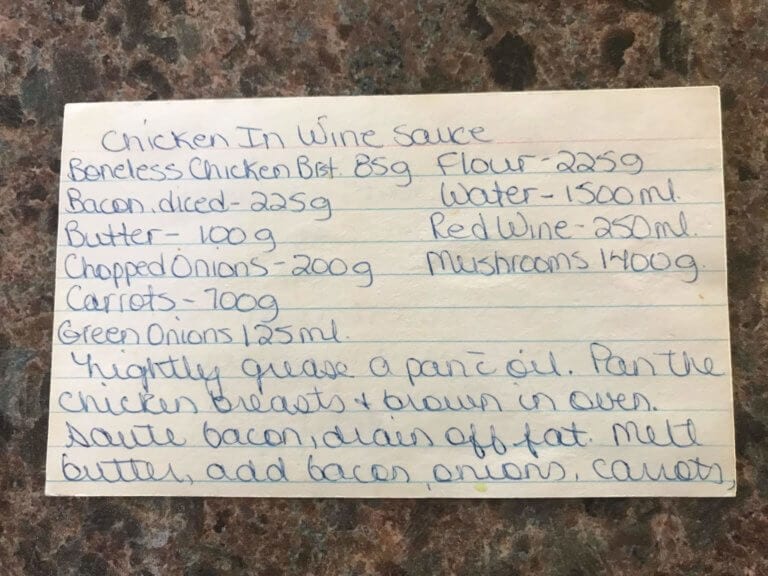 Chicken In Wine Sauce
Boneless Chicken Brst. 85g Flour - 225g
Bacon, diced - 225g Water - 1500ml.
Butter - 100g Red Wine - 250ml.
Chopped Onions - 200g Mushrooms 1400g.
Carrots - 700g
Green Onions 125ml.
Lightly grease a pan c̄ oil. Pan the
chicken breasts + brown in oven.
Saute bacon, drain off fat. Melt
butter, add bacon, onions, carrots,